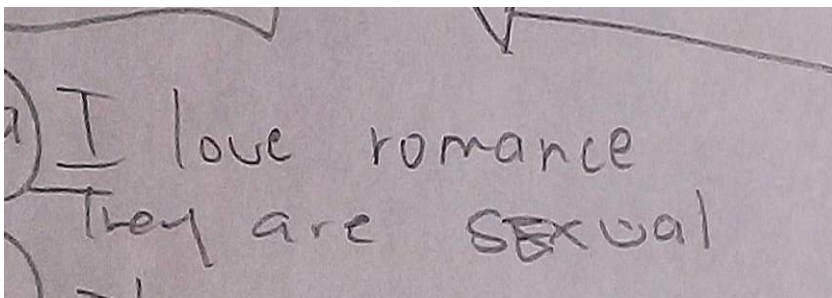 I love romance
They are sexual